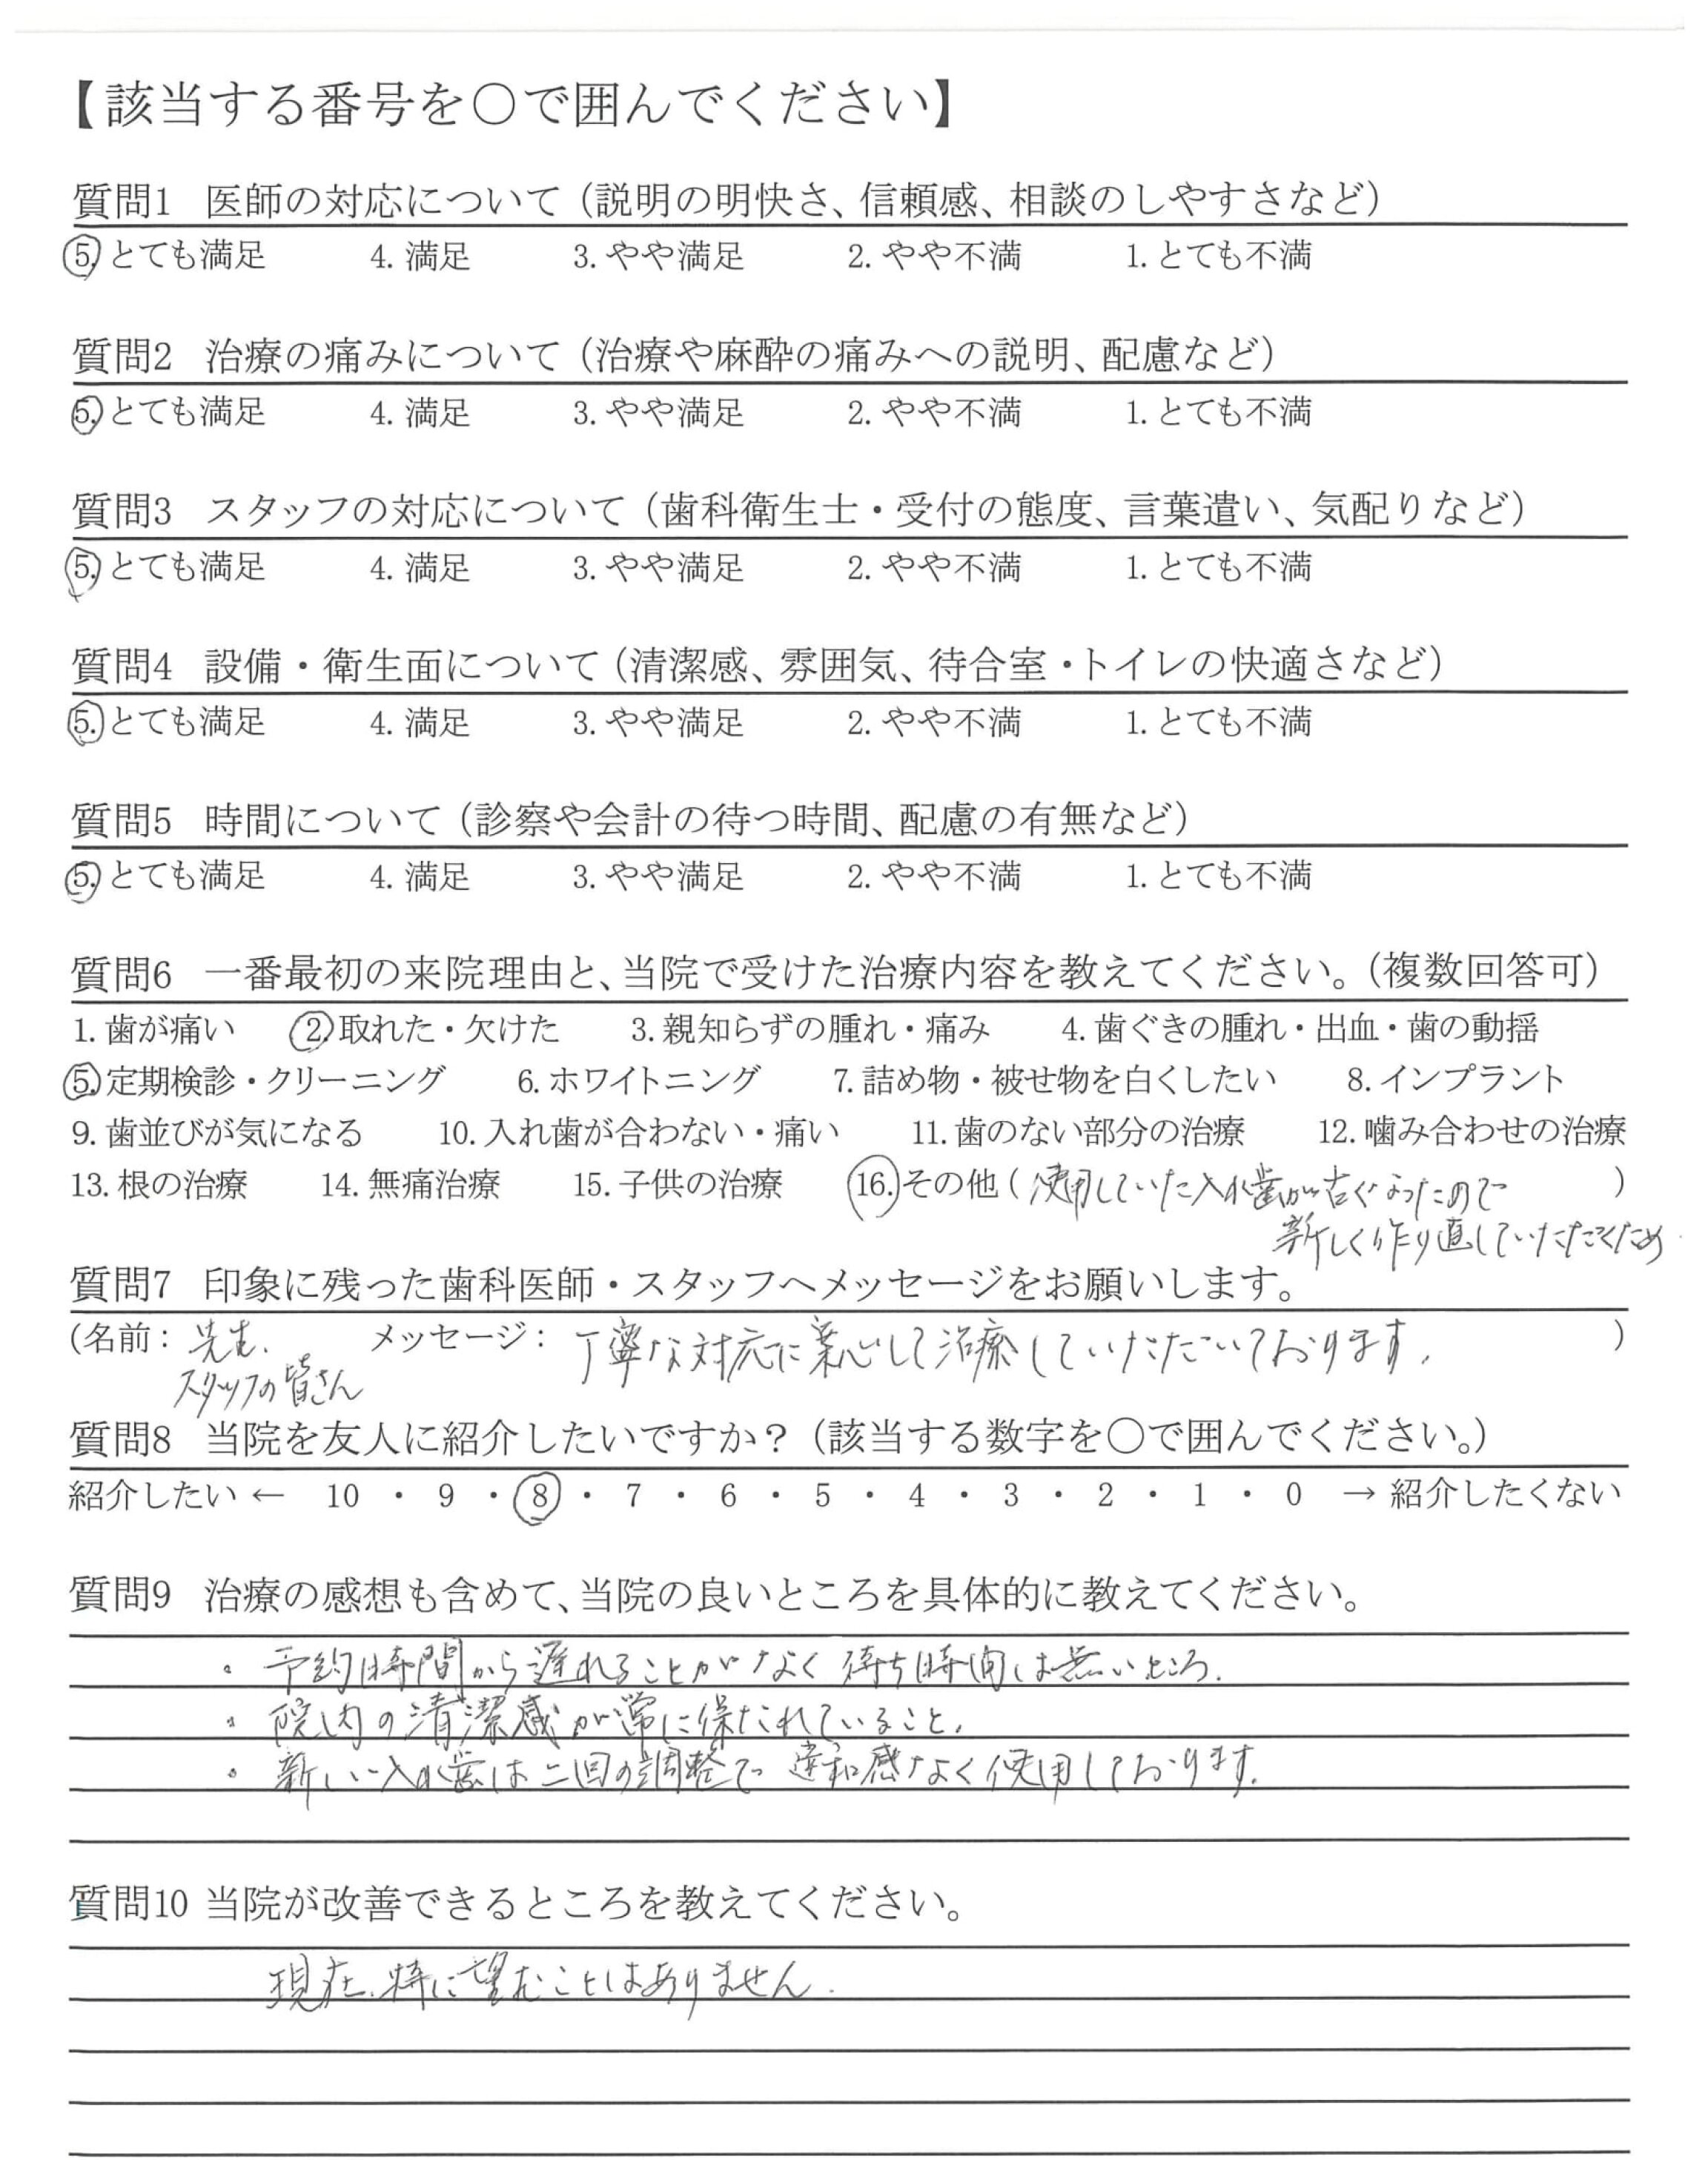 【該当する番号を○で囲んでください】
質問1 医師の対応について（説明の明快さ、信頼感、相談のしやすさなど）
5. とても満足 4. 満足 3. やや満足 2. やや不満 1. とても不満
質問2 治療の痛みについて（治療や麻酔の痛みへの説明、配慮など）
5. とても満足 4. 満足 3. やや満足 2. やや不満 1. とても不満
質問3 スタッフの対応について（歯科衛生士・受付の態度、言葉遣い、気配りなど）
5. とても満足 4. 満足 3. やや満足 2. やや不満 1. とても不満
質問4 設備・衛生面について（清潔感、雰囲気、待合室・トイレの快適さなど）
5. とても満足 4. 満足 3. やや満足 2. やや不満 1. とても不満
質問5 時間について（診察や会計の待つ時間、配慮の有無など）
5. とても満足 4. 満足 3. やや満足 2. やや不満 1. とても不満
質問6 一番最初の来院理由と、当院で受けた治療内容を教えてください。（複数回答可）
1. 歯が痛い 2. 取れた・欠けた 3. 親知らずの腫れ・痛み 4. 歯ぐきの腫れ・出血・歯の動揺
5. 定期検診・クリーニング 6. ホワイトニング 7. 詰め物・被せ物を白くしたい 8. インプラント
9. 歯並びが気になる 10. 入れ歯が合わない・痛い 11. 歯のない部分の治療 12. 噛み合わせの治療
13. 根の治療 14. 無痛治療 15. 子供の治療 16. その他（使用していた入れ歯が古くなったので ）
新しく作り直していただくため
質問7 印象に残った歯科医師・スタッフへメッセージをお願いします。
（名前： 先生. メッセージ： 丁寧な対応に安心して治療していただいております. ）
スタッフの皆さん
質問8 当院を友人に紹介したいですか？（該当する数字を○で囲んでください。）
紹介したい ← 10 ・ 9 ・ 8 ・ 7 ・ 6 ・ 5 ・ 4 ・ 3 ・ 2 ・ 1 ・ 0 → 紹介したくない
質問9 治療の感想も含めて、当院の良いところを具体的に教えてください。
。予約時間から遅れることがなく待ち時間は無いところ.
。院内の清潔感が常に保たれていること.
。新しい入れ歯は二回の調整で違和感なく使用しております.
質問10 当院が改善できるところを教えてください。
現在、特に望むことはありません.